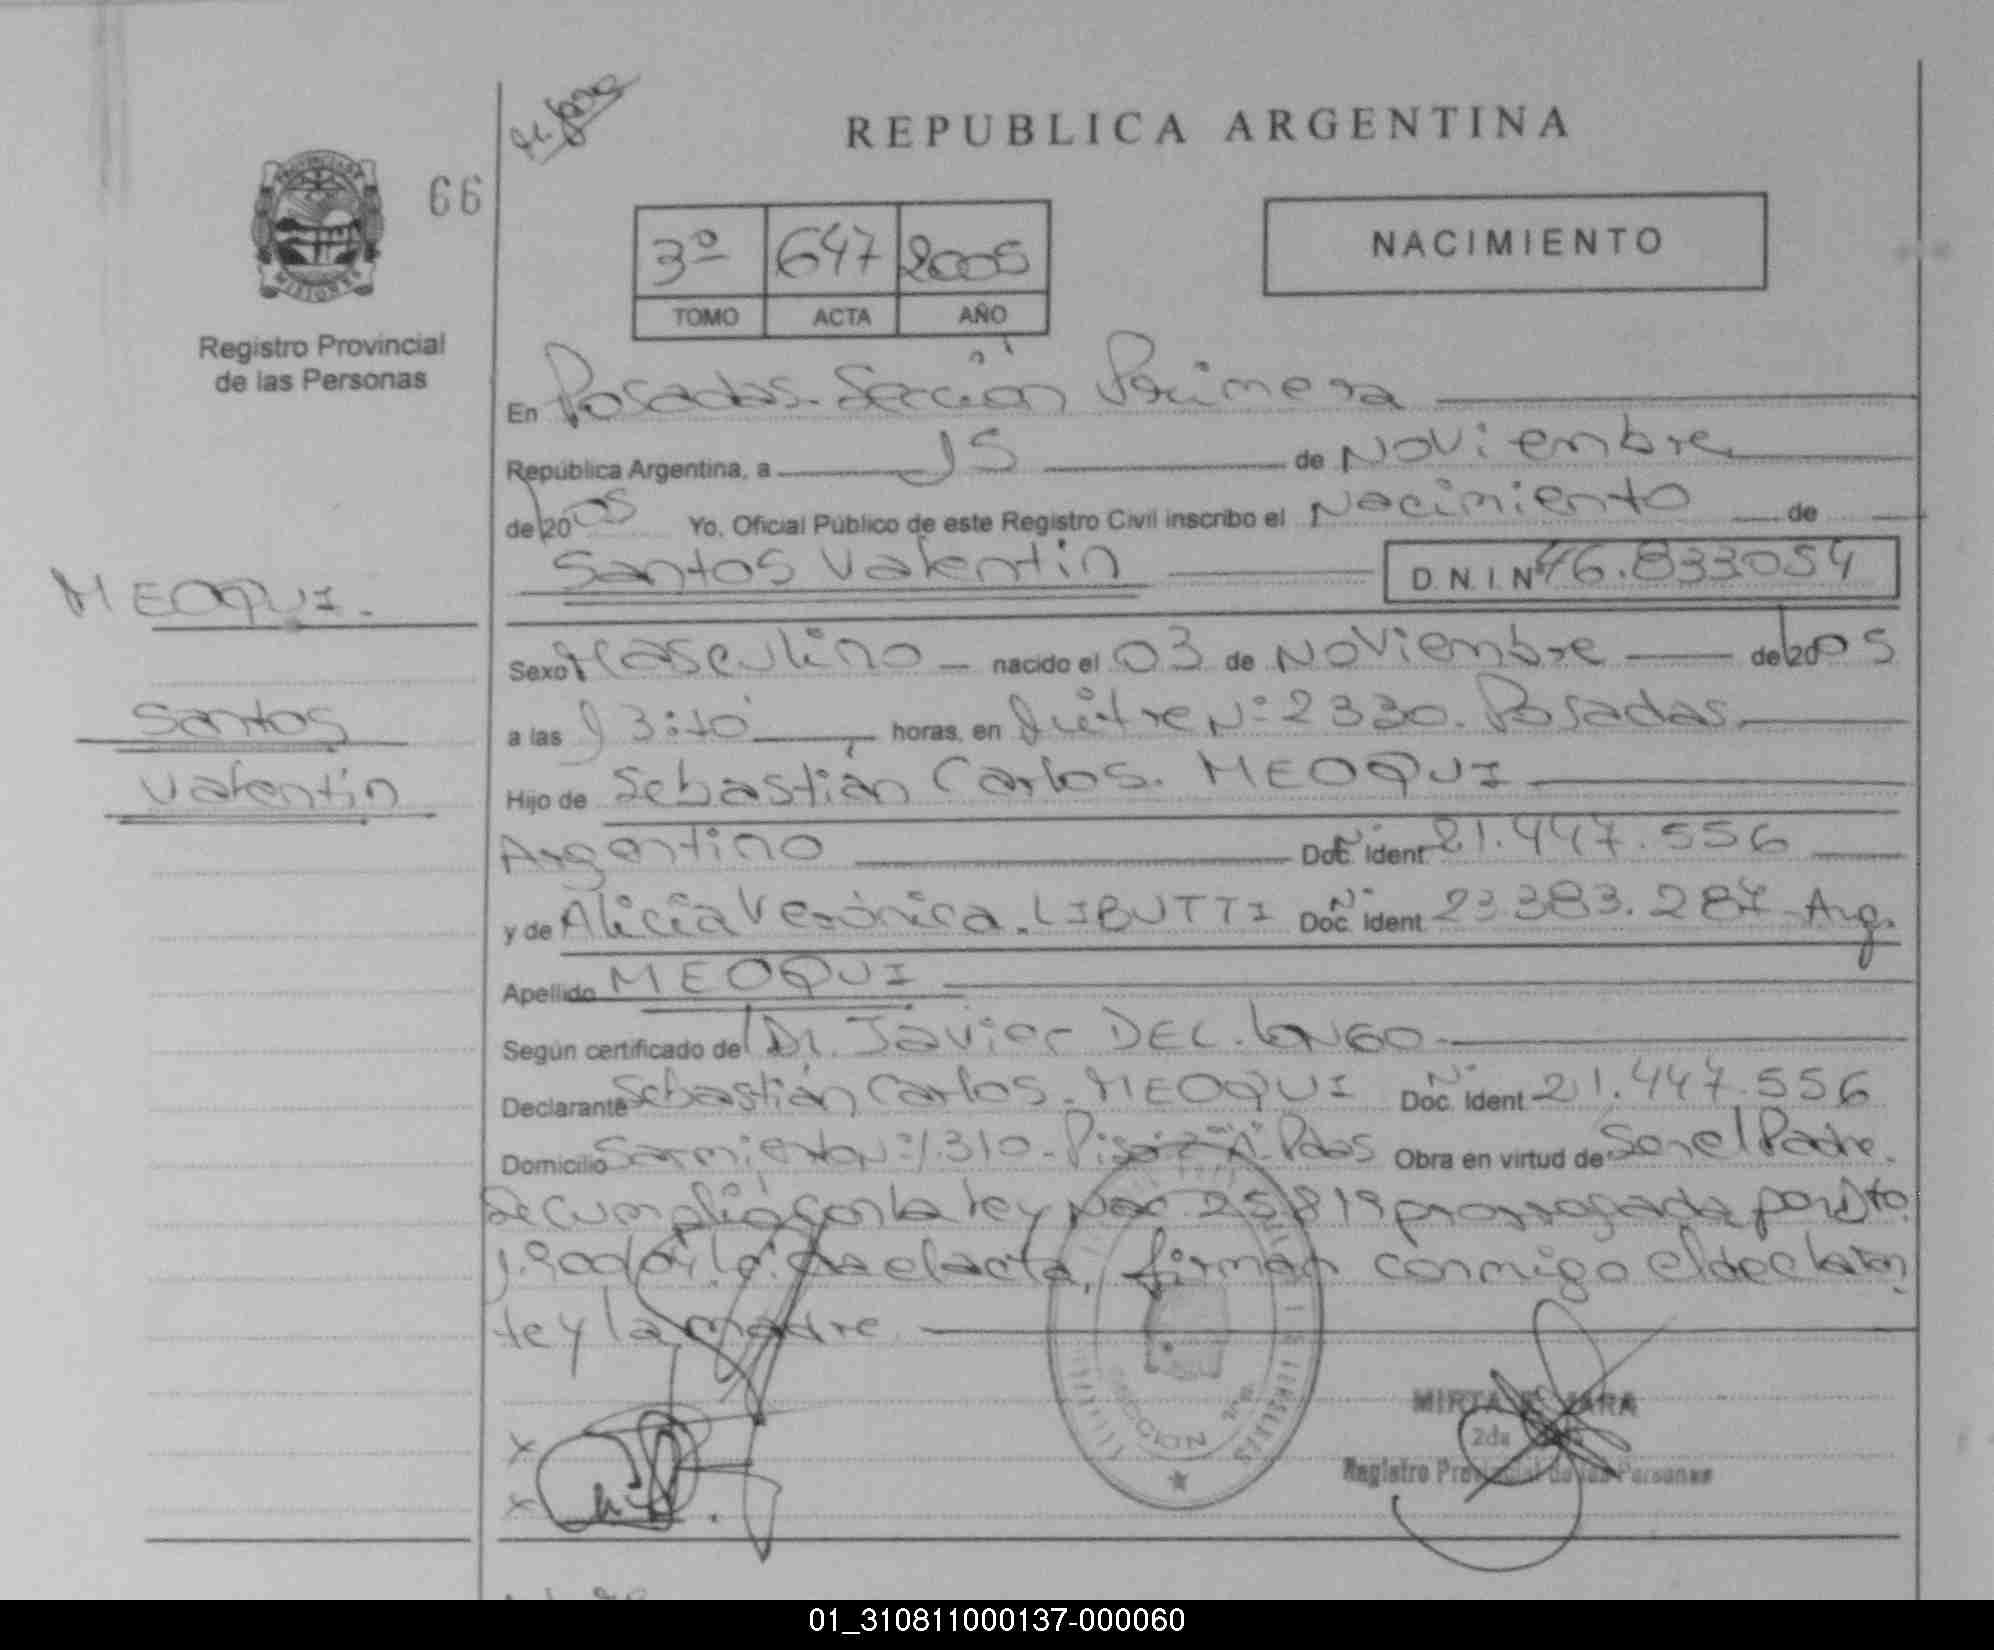 REPUBLICA ARGENTINA
PROVINCIA DE
MISIONES
66
Registro Provincial
de las Personas
3º 647 2005
TOMO ACTA AÑO
NACIMIENTO
En Posadas. Sección Primera
República Argentina, a 15 de Noviembre
de 2005 Yo, Oficial Público de este Registro Civil inscribo el Nacimiento de
Santos Valentín D.N.I. Nº 46.833054
MEOQUI.
Santos
Valentín
Sexo Masculino nacido el 03 de Noviembre de 2005
a las 13:10 horas, en Nº 2330. Posadas.
Hijo de Sebastián Carlos. MEOQUI
Argentino Nº Doc. Ident 21.447.556
y de Alicia Verónica. LIBUTTI Nº Doc. Ident 23.383.287 Arg.
Apellido MEOQUI
Según certificado de Dr. Javier DEL. LONGO
Declarante Sebastián Carlos. MEOQUI Nº Doc. Ident 21.447.556
Domicilio Sarmiento Nº 1310- Piso 2 "A". Pdas Obra en virtud de Ser el Padre.
Se cumplió con la ley Nac 25819 prorrogada por Dto.
el acta, firman conmigo el declaran
te y la madre
SECCION
MIRTA JARA
2da
Registro Provincial de las Personas
01_310811000137-000060